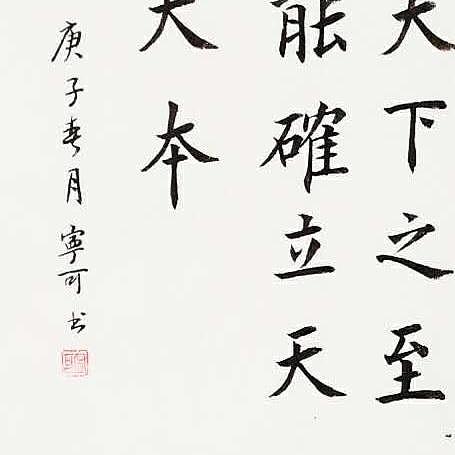 天下之至
能確立天
大本
庚子春月寧可书